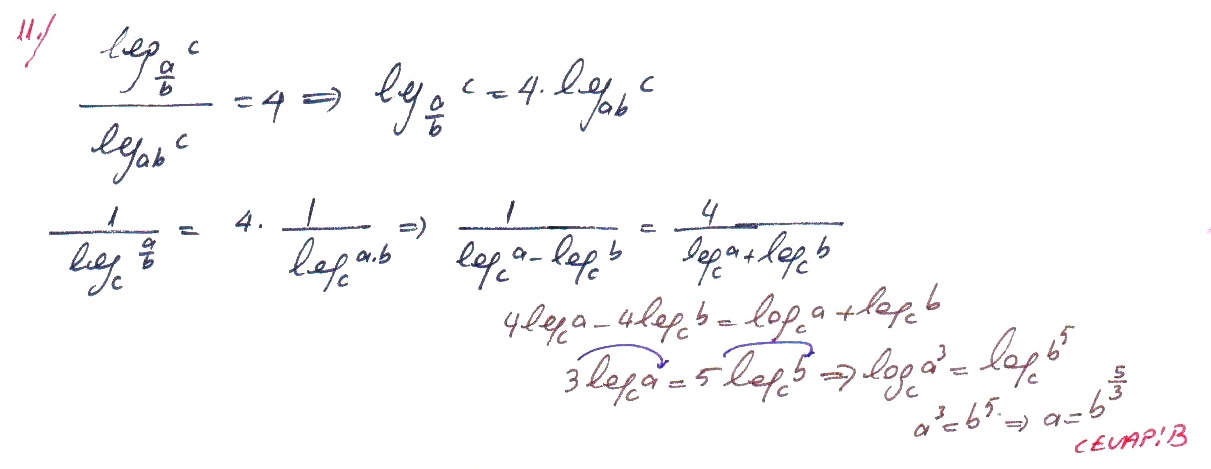 11.) \frac{\log_{\frac{a}{b}} c}{\log_{ab} c} = 4 ⇒ \log_{\frac{a}{b}} c = 4 \cdot \log_{ab} c
\frac{1}{\log_c \frac{a}{b}} = 4 \cdot \frac{1}{\log_c a.b} ⇒ \frac{1}{\log_c a - \log_c b} = \frac{4}{\log_c a + \log_c b}
4 \log_c a - 4 \log_c b = \log_c a + \log_c b
3 \log_c a = 5 \log_c b ⇒ \log_c a^3 = \log_c b^5
a^3 = b^5 ⇒ a = b^{\frac{5}{3}}
CEVAP: B